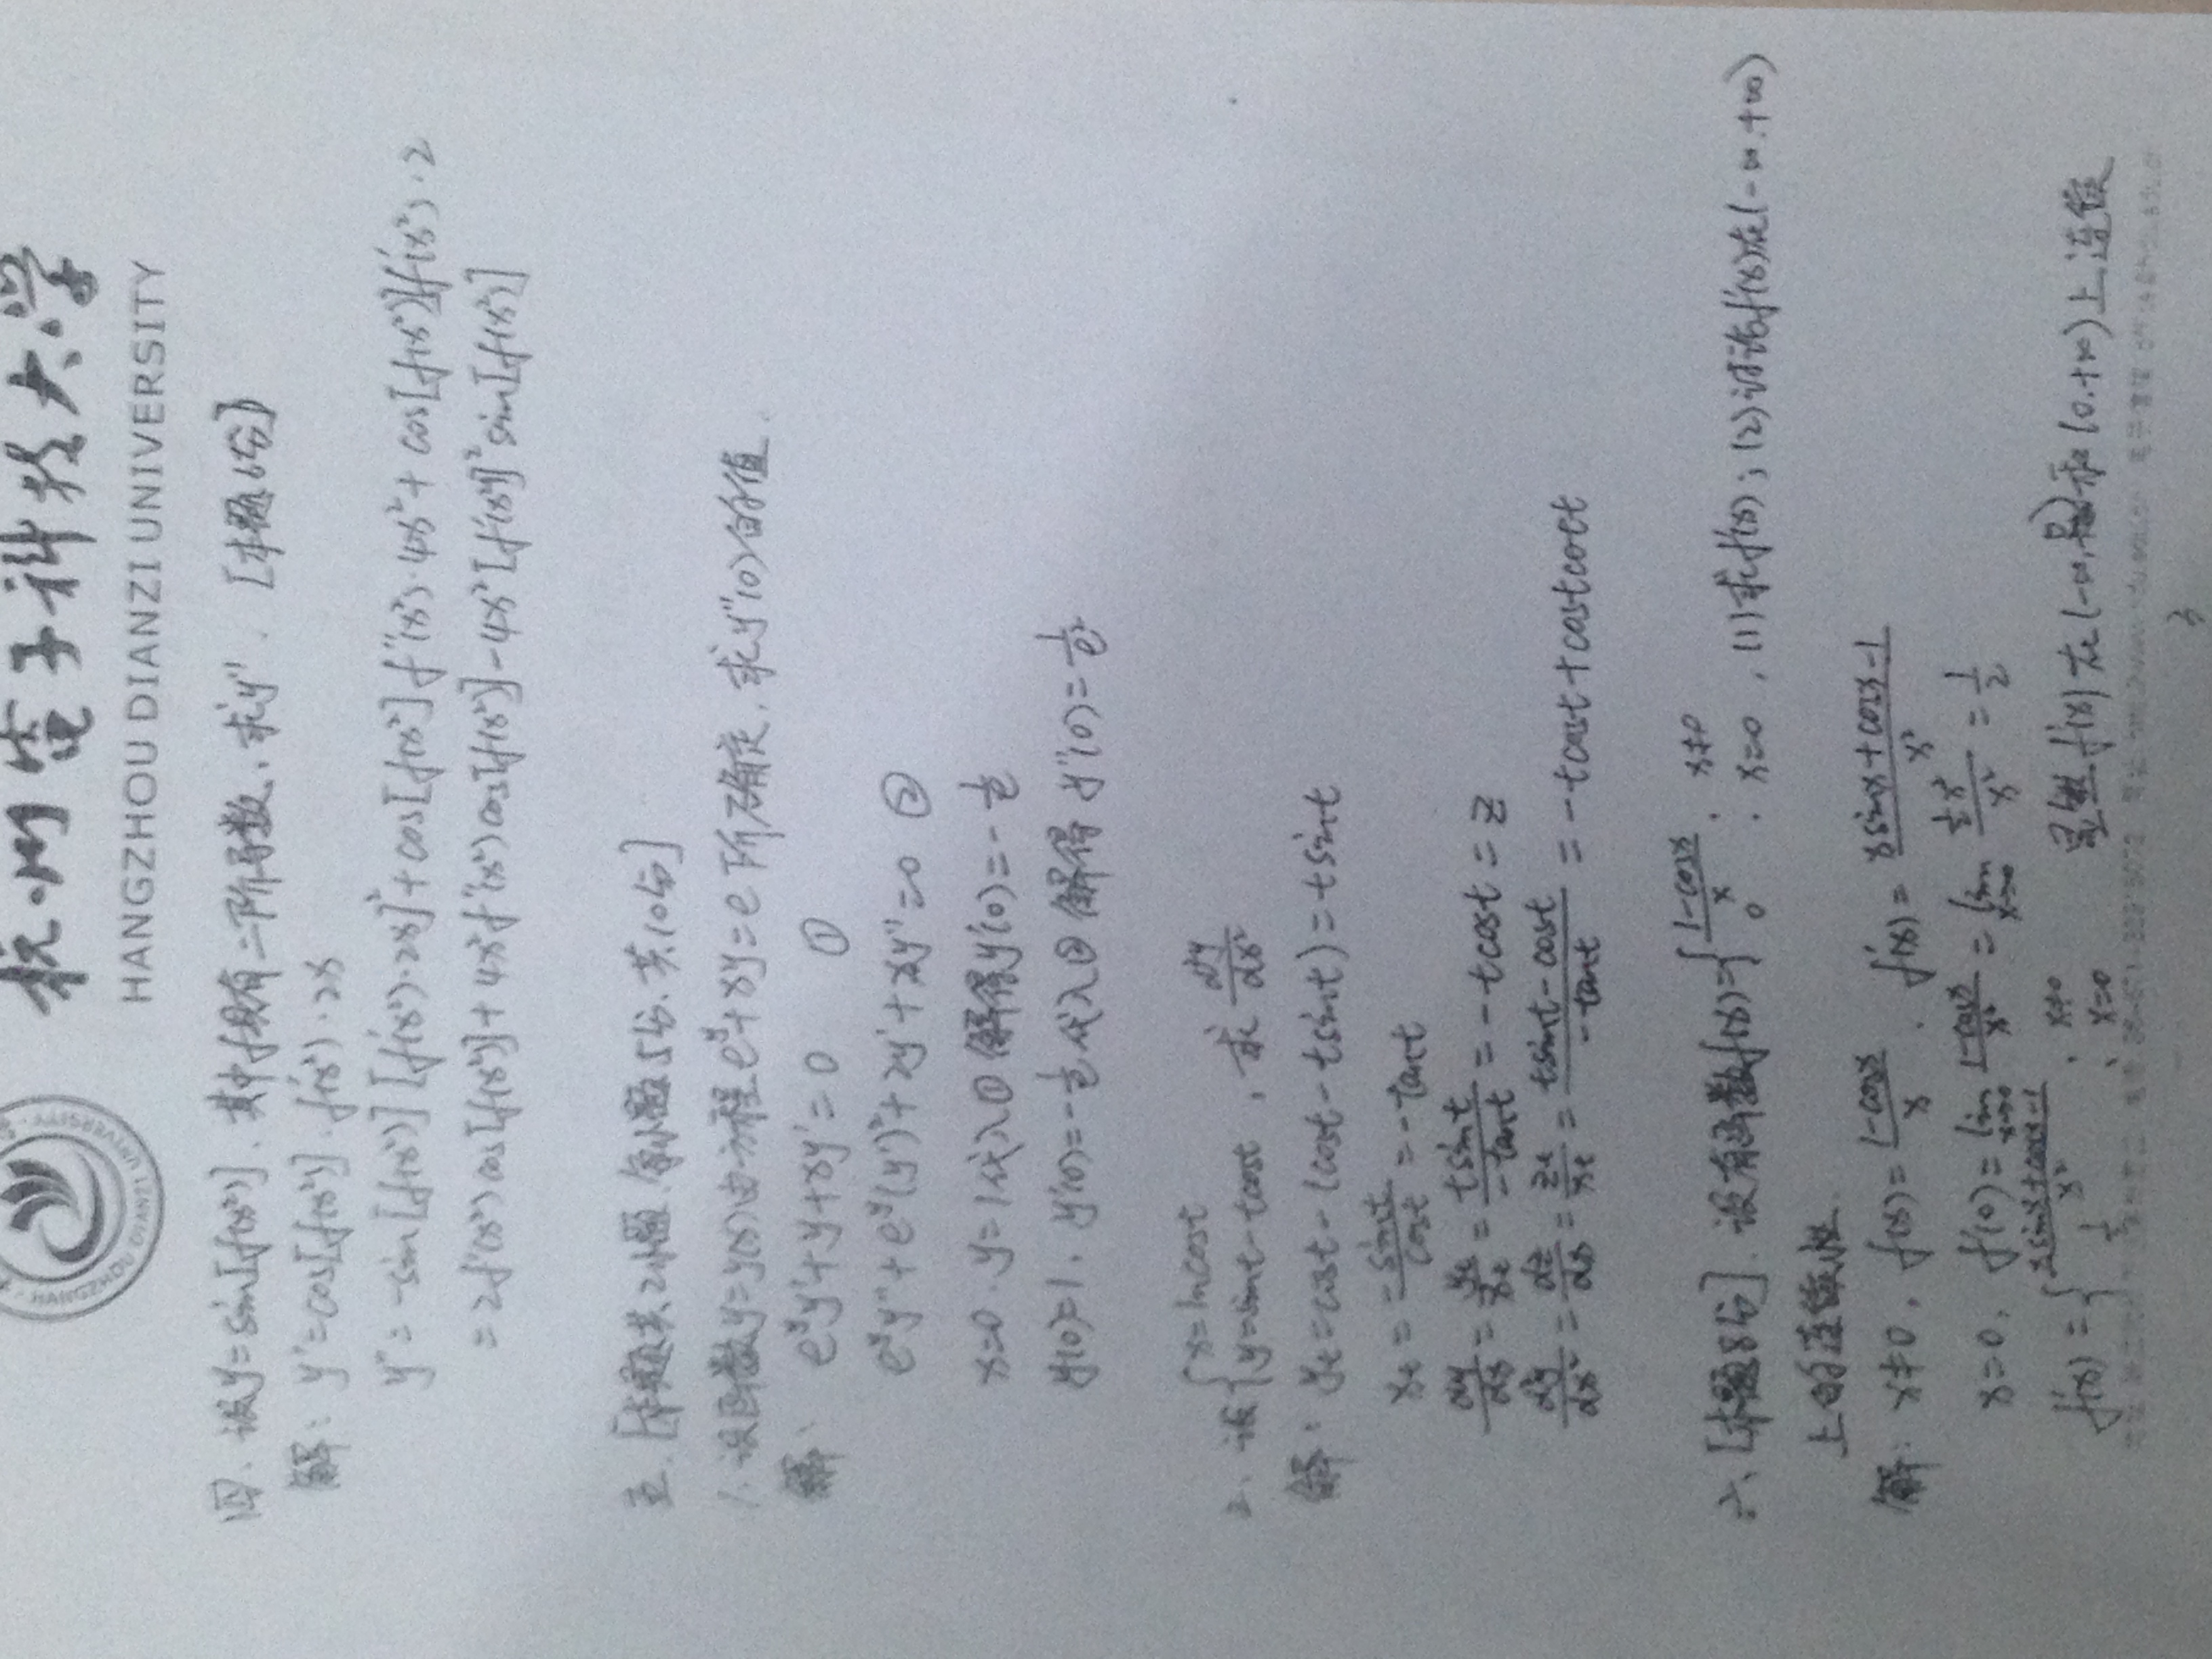 杭州電子科技大学
HANGZHOU DIANZI UNIVERSITY
HANGZHOU DIANZI UNIVERSITY
四. 设y=sin[f(x²)], 其中f具有二阶导数, 求y''. [本题6分]
解: y'=cos[f(x²)]·f'(x²)·2x
y''=-sin[f(x²)][f'(x²)·2x]²+cos[f(x²)]f''(x²)·4x²+cos[f(x²)]f'(x²)·2
=2f'(x²)cos[f(x²)]+4x²f''(x²)cos[f(x²)]-4x²[f'(x²)]²sin[f(x²)]
五. [本题共2小题, 每小题5分, 共10分]
1. 设函数y=y(x)由方程e^y+xy=e所确定, 求y''(0)的值.
解: e^y y'+y+xy'=0 ①
e^y y''+e^y(y')²+2y'+xy''=0 ②
x=0, y=1代入① 解得y'(0)=-1/e
y(0)=1, y'(0)=-1/e代入② 解得 y''(0)=1/e²
2. 设{x=lncost
y=sint-tcost, 求 d²y/dx²
解: y_t=cost-(cost-tsint)=tsint
x_t=-sint/cost=-tant
dy/dx=y_t/x_t=tsint/-tant=-tcost=z
d²y/dx²=dz/dx=z_t/x_t=(tsint-cost)/-tant=-tcost+costcott
六. [本题8分]. 设有函数f(x)={(1-cosx)/x, x≠0
0, x=0, (1)求f'(x); (2)讨论f'(x)在(-∞,+∞)
上的连续性.
解: x≠0, f(x)=(1-cosx)/x, f'(x)=(xsinx+cosx-1)/x²
x=0, f'(0)=lim x→0 (1-cosx)/x²=lim x→0 (½x²)/x²=1/2
f'(x)={(xsinx+cosx-1)/x², x≠0
1/2, x=0 显然f'(x)在(-∞,0)和(0,+∞)上连续
3